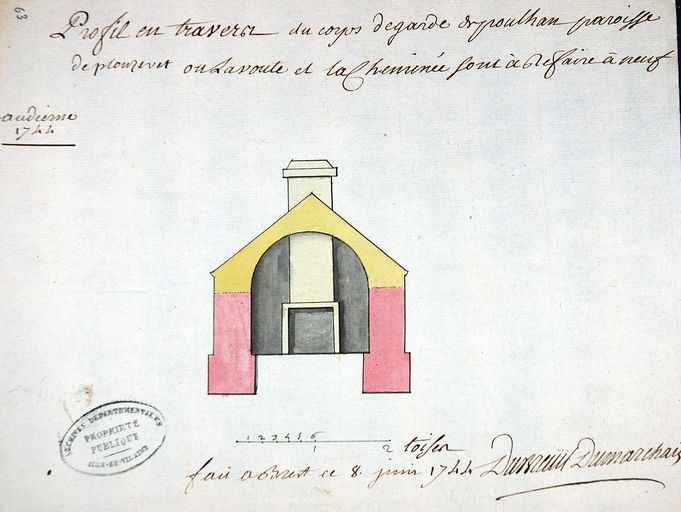 63
Profil en travers du corps degarde de poulhan paroisse
de plouzevet ou Lavoute et la Cheminée Sont à Refaire à neuf
audierne
1744
ARCHIVES DEPARTEMENTALES
PROPRIÉTÉ
PUBLIQUE
ILLE-ET-VILAINE
1 2 3 4 5 6
1 2 toises
fait a Brest ce 8. juin 1744 Dumarchais